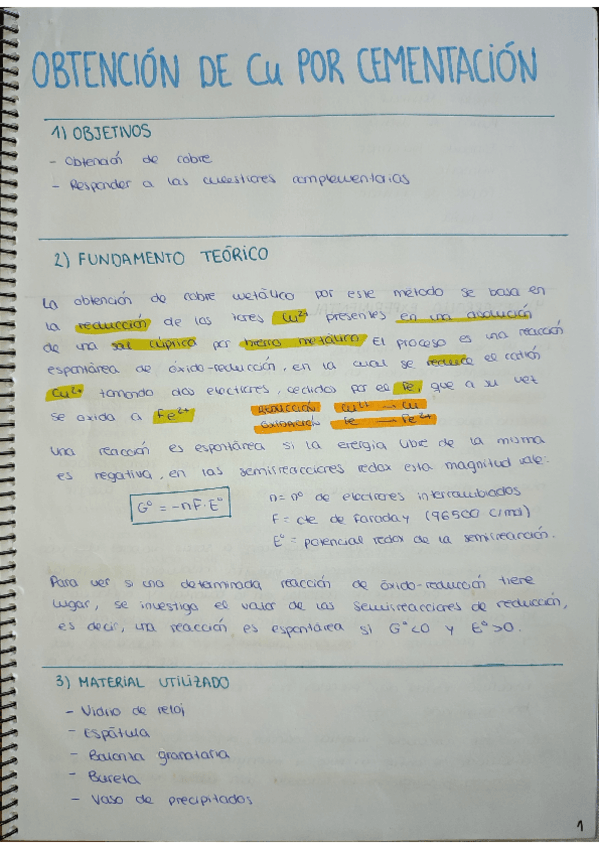 OBTENCIÓN DE Cu POR CEMENTACIÓN
1) OBJETIVOS
- Obtención de cobre
- Responder a las cuestiones complementarias
2) FUNDAMENTO TEÓRICO
La obtención de cobre metálico por este método se basa en
la reducción de los iones Cu²⁺ presentes en una disolución
de una sal cúprica por hierro metálico. El proceso es una reacción
espontánea de óxido-reducción, en la cual se reduce el catión
Cu²⁺ tomando dos electrones, cedidos por el Fe, que a su vez
se oxida a Fe²⁺
REDUCCIÓN Cu²⁺ → Cu
OXIDACIÓN Fe → Fe²⁺
Una reacción es espontánea si la energía libre de la misma
es negativa, en las semirreacciones redox esta magnitud vale:
G° = -nF·E°
n = nº de electrones intercambiados
F = cte de Faraday (96500 C/mol)
E° = potencial redox de la semireacción.
Para ver si una determinada reacción de óxido-reducción tiene
lugar, se investiga el valor de las semirreacciones de reducción,
es decir, una reacción es espontánea si G°<0 y E°>0.
3) MATERIAL UTILIZADO
- Vidrio de reloj
- Espátula
- Balanza granataria
- Bureta
- Vaso de precipitados
1